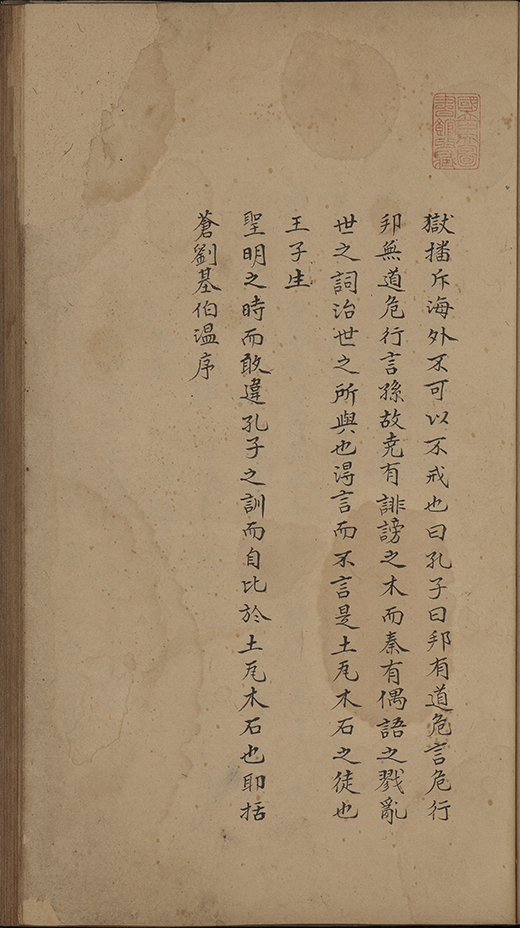 國立圖
書館藏
獄播斥海外不可以不戒也曰孔子曰邦有道危言危行
邦無道危行言孫故尭有誹謗之木而秦有偶語之戮亂
世之詞治世之所與也淂言而不言是土瓦木石之徒也
王子生
聖明之時而敢違孔子之訓而自比於土瓦木石也耶括
蒼劉基伯温序